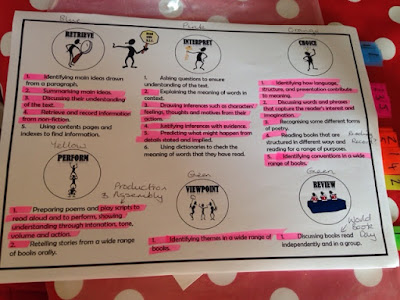 Blue
Pink
Orange
RETRIEVE
INTERPRET
CHOICE
1. Identifying main ideas drawn
from a paragraph.
2. Summarising main ideas.
3. Discussing their understanding
of the text.
4. Retrieve and record information
from non-fiction.
5. Using contents pages and
indexes to find information.
1. Asking questions to ensure
understanding of the text.
2. Explaining the meaning of words in
context.
3. Drawing inferences such as characters'
feelings, thoughts and motives from their
actions.
4. Justifying inferences with evidence.
5. Predicting what might happen from
details stated and implied.
6. Using dictionaries to check the
meaning of words that they have read.
1. Identifying how language,
structure, and presentation contribute
to meaning.
2. Discussing words and phrases
that capture the reader's interest and
imagination.
3. Recognising some different forms
of poetry.
4. Reading books that are
structured in different ways and
reading for a range of purposes.
5. Identifying conventions in a wide
range of books.
Reading
Record
Yellow
PERFORM
Production
& Assembly
Green
VIEWPOINT
Green
REVIEW
World
Book
Day
1. Preparing poems and play scripts to
read aloud and to perform, showing
understanding through intonation, tone,
volume and action.
2. Retelling stories from a wide range
of books orally.
1. Identifying themes in a wide range of
books.
1. Discussing books read
independently and in a group.